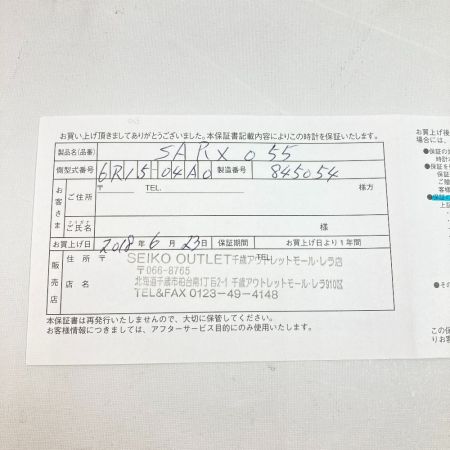 お買い上げ頂きましてありがとうございました。本保証書記載内容によりこの時計を保証いたします。
製品名(品番) SARX055
側型式番号 6R15-04A0 製造番号 845054
お客さま ご住所 〒 TEL. 様方
ご氏名 様
お買上げ日 2018年6月23日 保証期間 お買上げ日より1年間
販売店 住所 〒 TEL.
店名
SEIKO OUTLET千歳アウトレットモール・レラ店
〒066-8765
北海道千歳市柏台南1丁目2-1 千歳アウトレットモール・レラ910区
TEL&FAX 0123-49-4148
本保証書は再発行いたしませんので、大切に保管してください。
お客様情報につきましては、アフターサービス目的にのみ使用いたします。
お買上げ後
場合には、
●保証の
時計
●保証を
保証
ご購
客様
●保証
上記
●その
この保
りお客